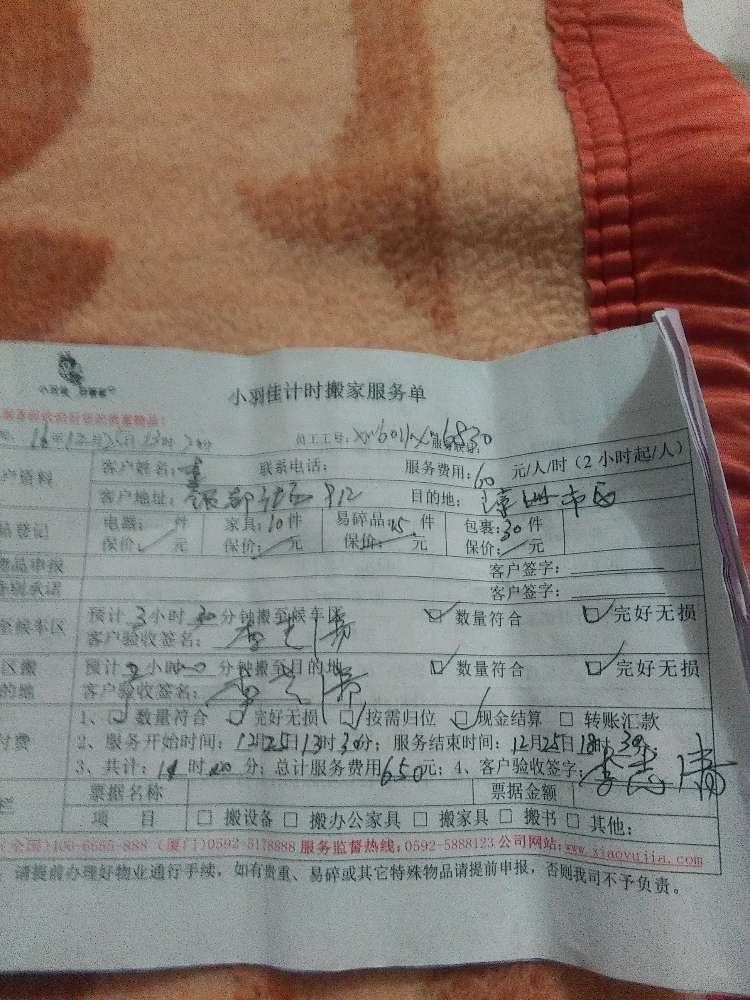 小羽佳计时搬家服务单
16年12月25日13时20分 员工工号: 服务联系:
户资料 客户姓名:李 联系电话: 服务费用:60元/人/时(2小时起/人)
客户地址: 912 目的地: 市区
品登记 电器: 件 家具:10件 易碎品:15件 包裹:30件
保价: 元 保价: 元 保价: 元 保价: 元
物品申报 客户签字:
特别承诺 客户签字:
至候车区 预计3小时30分钟搬至候车区 ☑数量符合 ☑完好无损
客户验收签名:
区搬 预计 小时 分钟搬至目的地 ☑数量符合 ☑完好无损
的地 客户验收签名:
付费 1、☑数量符合 ☑完好无损 ☑按需归位 ☑现金结算 □转账汇款
2、服务开始时间:12月25日13时30分;服务结束时间:12月25日18时30
3、共计: 时 分;总计服务费用650元;4、客户验收签字:
栏 票据名称 票据金额
项 目 □搬设备 □搬办公家具 □搬家具 □搬书 □其他:
(全国)400-6655-888 (厦门)0592-5178888 服务监督热线:0592-5888123 公司网站:www.xiaoyujia.com
请提前办理好物业通行手续,如有贵重、易碎或其它特殊物品请提前申报,否则我司不予负责。